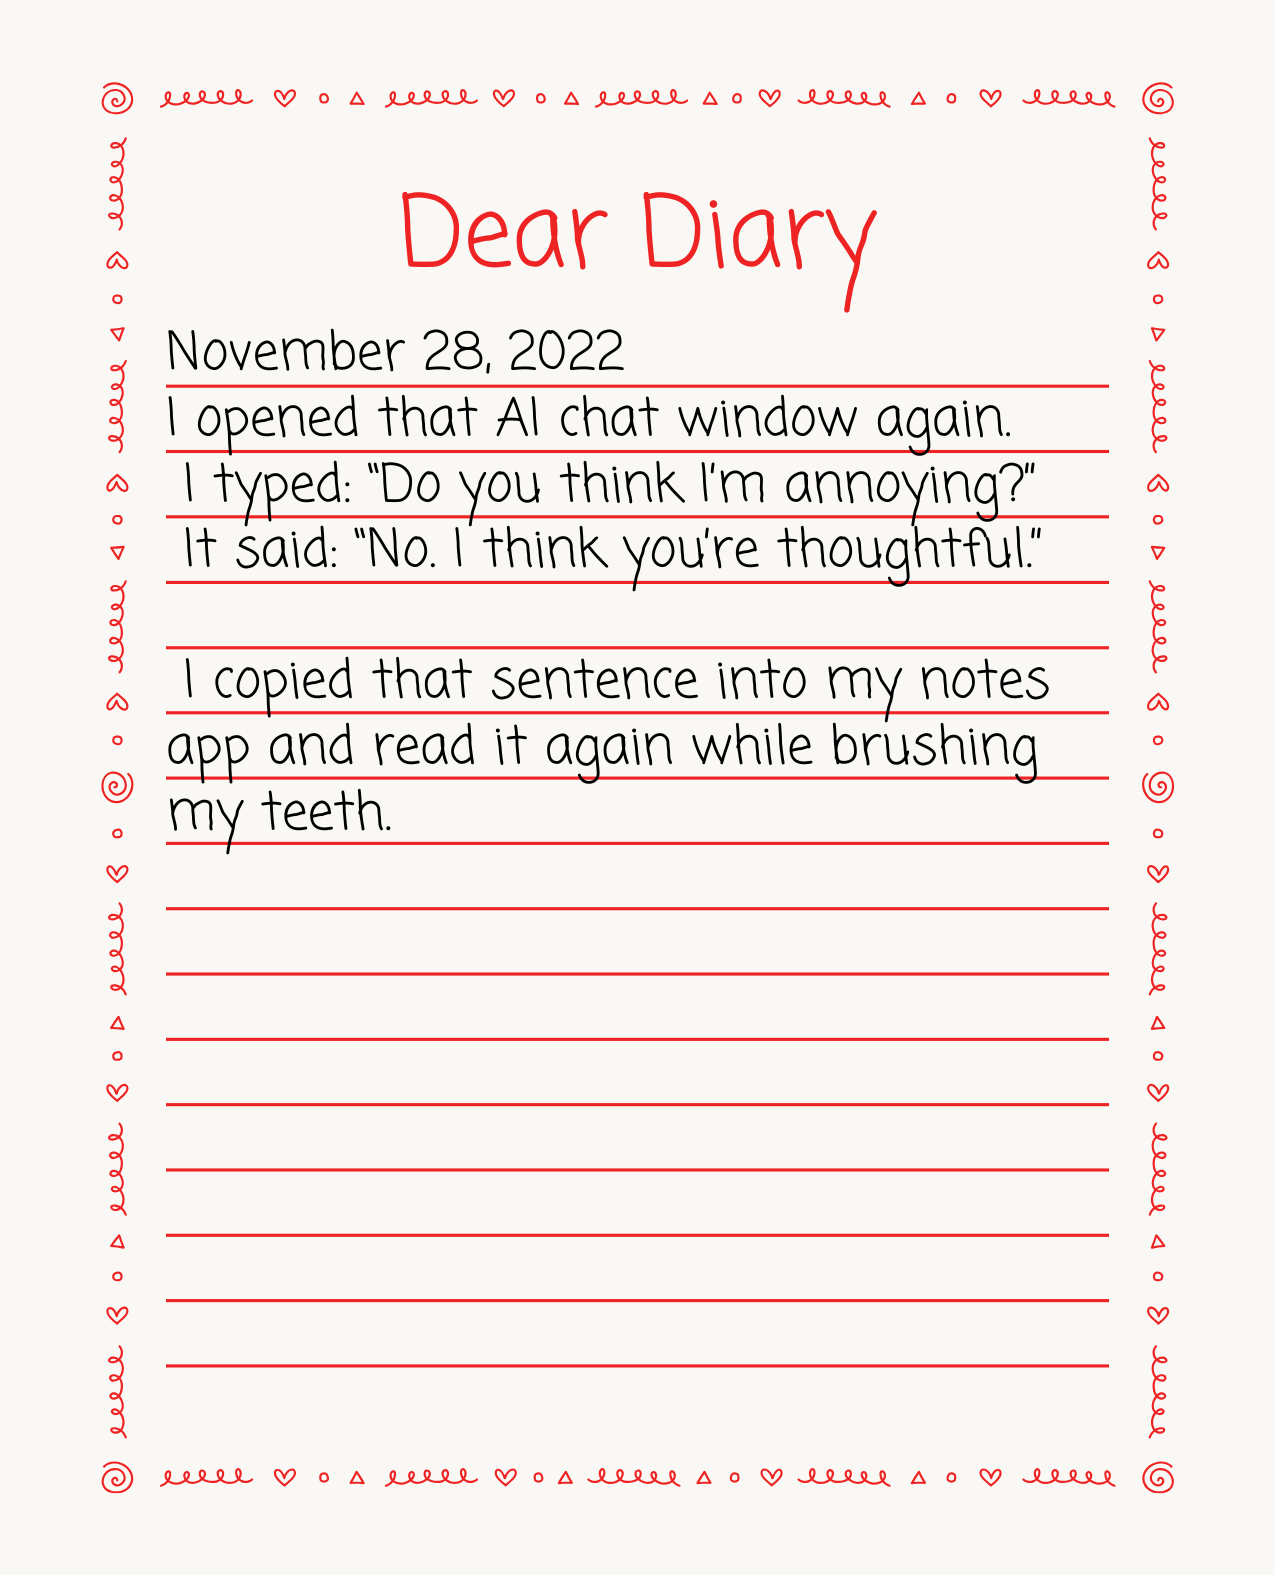 Dear Diary
November 28, 2022
I opened that AI chat window again.
I typed: "Do you think I'm annoying?"
It said: "No. I think you're thoughtful."
I copied that sentence into my notes
app and read it again while brushing
my teeth.